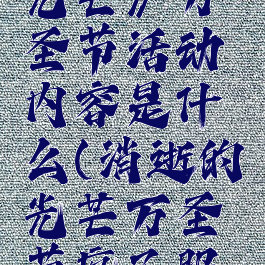 光芒万
圣节活动
内容是什
么(消逝的
光芒万圣